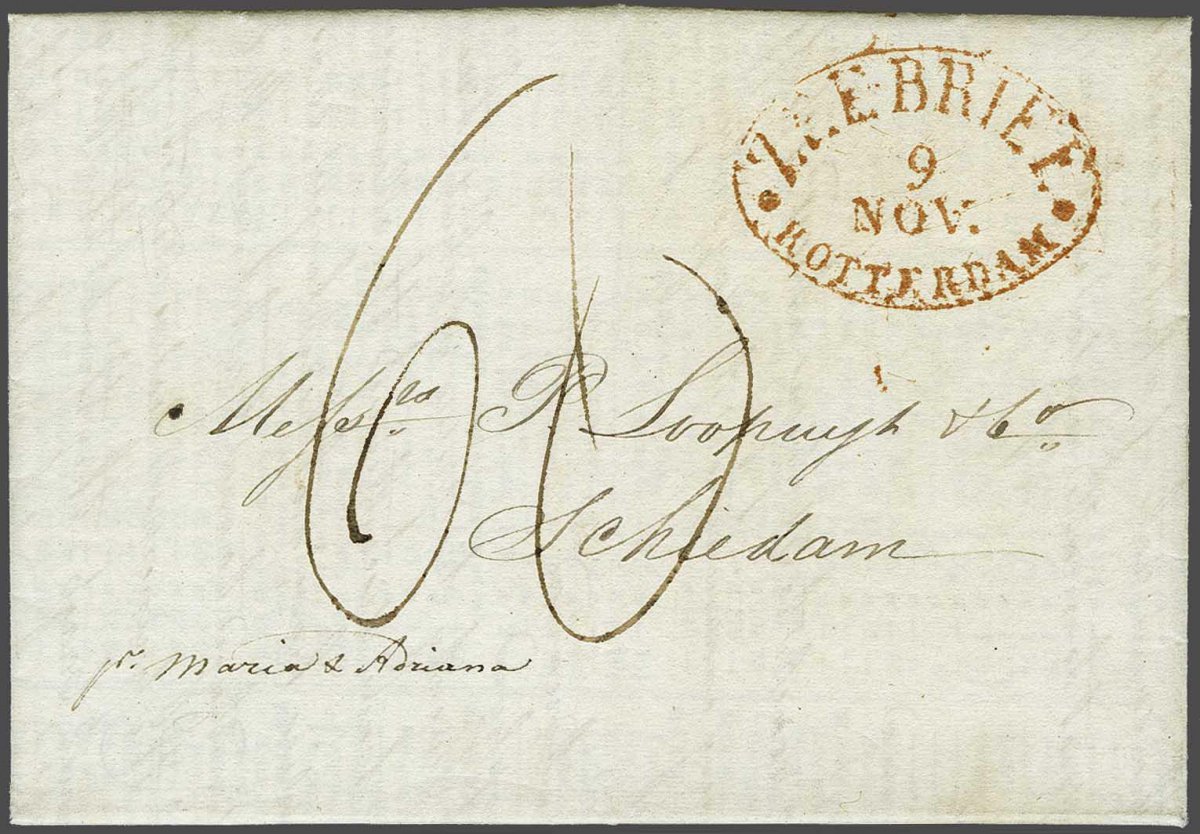 ZEEBRIEF
9
NOV.
ROTTERDAM
60
Messrs P. Loopuyt & Co
Schiedam
pr. Maria & Adriana